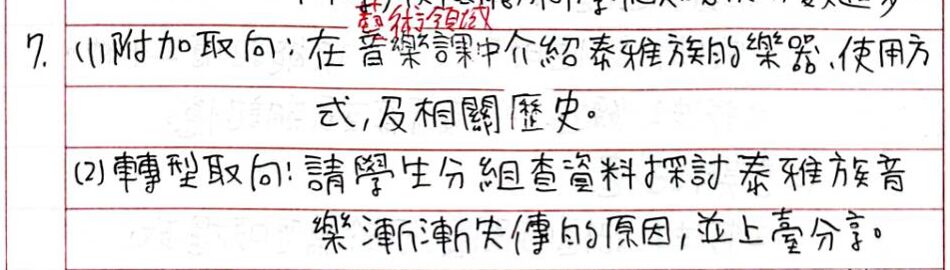 藝術領域
7. (1)附加取向：在音樂課中介紹泰雅族的樂器、使用方
式,及相關歷史。
(2)轉型取向：請學生分組查資料探討泰雅族音
樂漸漸失傳的原因,並上臺分享。